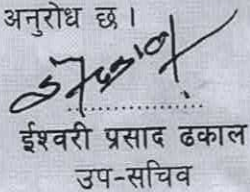 अनुरोध छ ।
ईश्वरी प्रसाद ढकाल
उप-सचिव